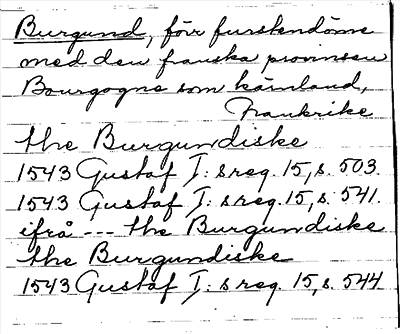 Burgund, förr furstendöme
med den franska provinsen
Bourgogne som kärnland,
Frankrike
the Burgundiske
1543 Gustaf I: s reg. 15, s. 503.
1543 Gustaf I: s reg. 15, s. 541.
ifrå --- the Burgundiske
the Burgundiske
1543 Gustaf I: s reg. 15, s. 544.